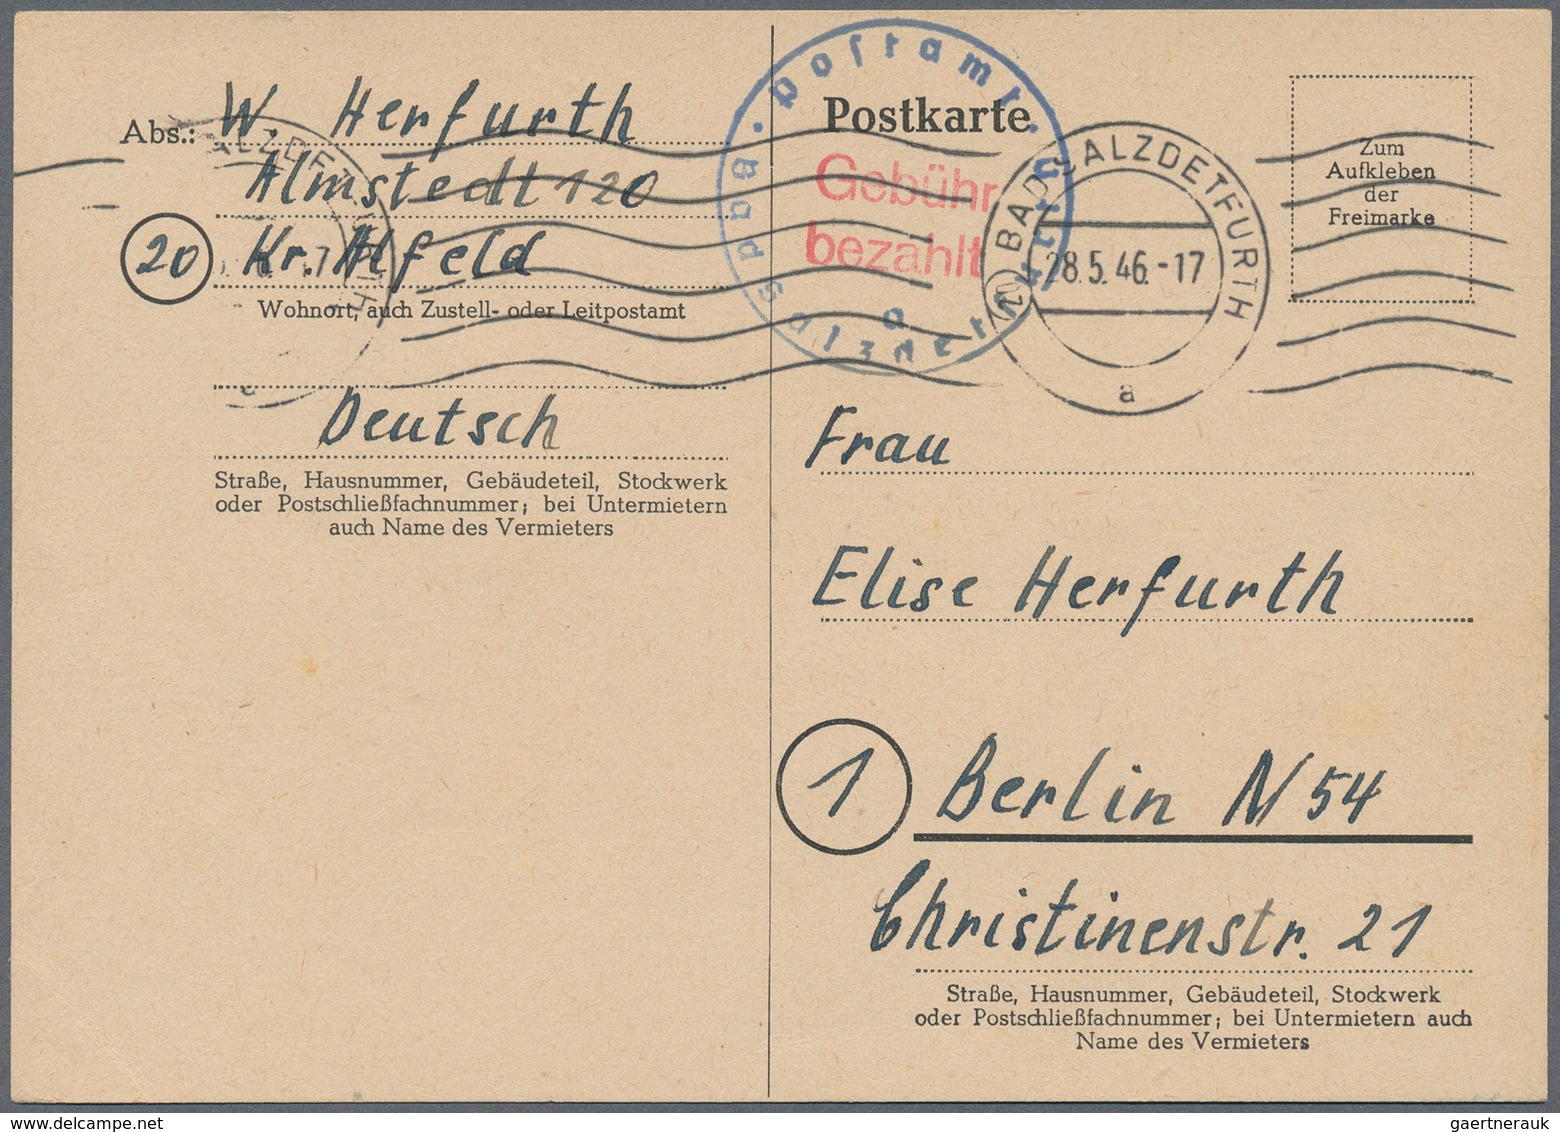 Abs.: W. Herfurth
Almstedt 120
20 Kr. Alfeld
Wohnort, auch Zustell- oder Leitpostamt
Deutsch
Straße, Hausnummer, Gebäudeteil, Stockwerk
oder Postschließfachnummer; bei Untermietern
auch Name des Vermieters
Postkarte
Gebühr
bezahlt
Postamt
Bad Salzdetfurth
a
(20) BAD SALZDETFURTH
28.5.46.-17
a
Zum
Aufkleben
der
Freimarke
Frau
Elise Herfurth
1 Berlin N 54
Christinenstr. 21
Straße, Hausnummer, Gebäudeteil, Stockwerk
oder Postschließfachnummer; bei Untermietern auch
Name des Vermieters
gaertnerauk @ www.delcampe.net